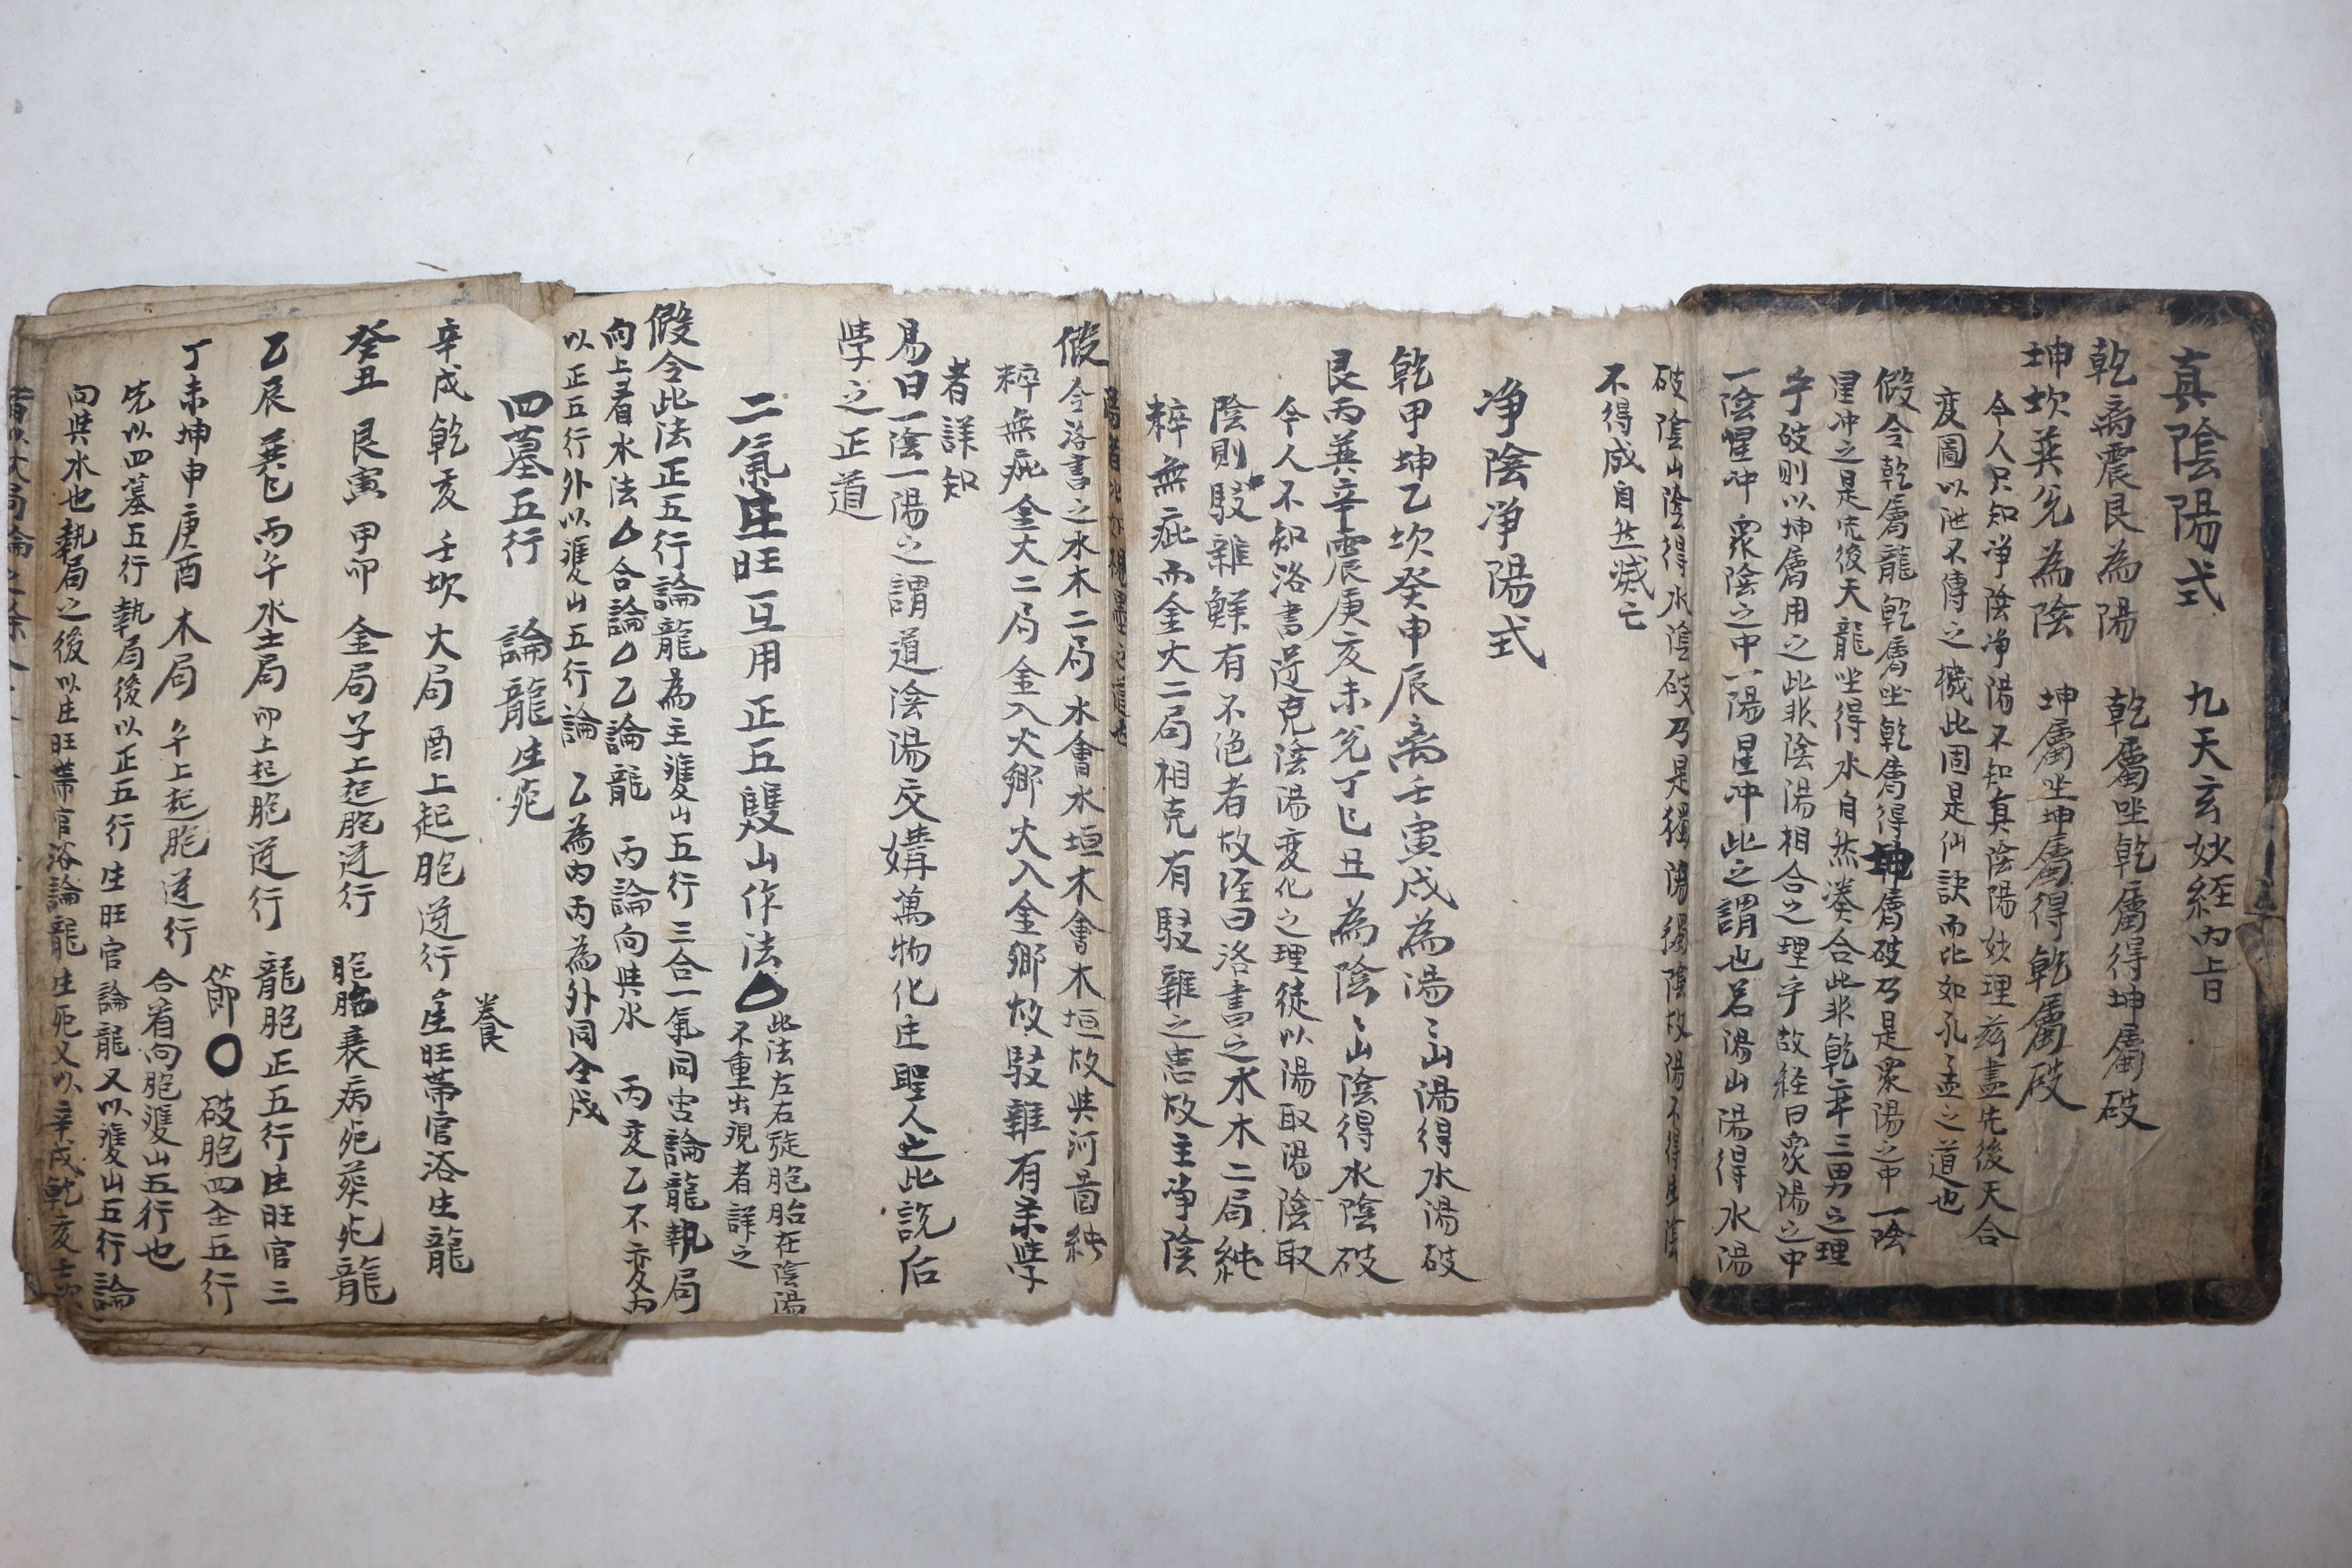 真陰陽式 九天玄妙經內上曰
乾离震艮為陽 乾屬坐乾屬得坤屬破
坤坎巽兌為陰 坤屬坐坤屬得乾屬破
今人只知净陰净陽不知真陰陽妙理茲盡先後天合
変圖以泄不傳之機此固是仙訣而比如孔孟之道也
假令乾屬龍乾屬坐乾屬得坤屬破乃是衆陽之中一陰
星冲之是先後天龍坐得水自然湊合此非乾卒三男之理
乎破則以坤屬用之此非陰陽相合之理乎故経曰衆陽之中
一陰惺冲衆陰之中一陽星冲此之謂也若陽山陽得水陽
破陰山陰得水陰破乃是獨陽獨陰故陽不得生陰
不得成自然滅亡
净陰净陽式
乾甲坤乙坎癸申辰离壬寅戌為陽〻山陽得水陽破
艮丙巽辛震庚亥未兌丁巳丑為陰〻山陰得水陰破
今人不知洛書逆克陰陽変化之理徒以陽取陽陰取
陰則駁雜鮮有不絶者故注曰洛書之水木二局純
粹無疵而金火二局相克有駁雜之患故主净陰
假令洛書之水木二局水會水垣木會木垣故與河啚純
粹無疵金火二局金入火鄉火入金鄉故駁雜有柔學
者詳知
易曰一陰一陽之謂道陰陽交媾萬物化生聖人也此說后
學之正道
二氣生旺互用正五雙山作法 此法左右旋胞胎在陰陽
不重出現者詳之
假令此法正五行論龍為主雙山五行三合一氣同宮論龍執局
向上看水法 合論 乙論龍 丙論向與水 丙変乙不変丙
以正五行外以雙山五行論 乙為內丙為外同全成
四墓五行 論龍生死
養
辛戌乾亥壬坎火局酉上起胞逆行生旺帶官浴生龍
癸丑艮寅甲卯金局子上起胞逆行胞胎衰病死葬死龍
乙辰巽巳丙午水土局卯上起胞逆行 龍胞正五行生旺官三
丁未坤申庚酉木局午上起胞逆行 節〇破胞四全五行
合看向胞雙山五行也
先以四墓五行執局後以正五行生旺官論龍又以雙山五行論
向與水也執局之後以生旺帶官浴論龍生死又以辛戌乾亥壬坎